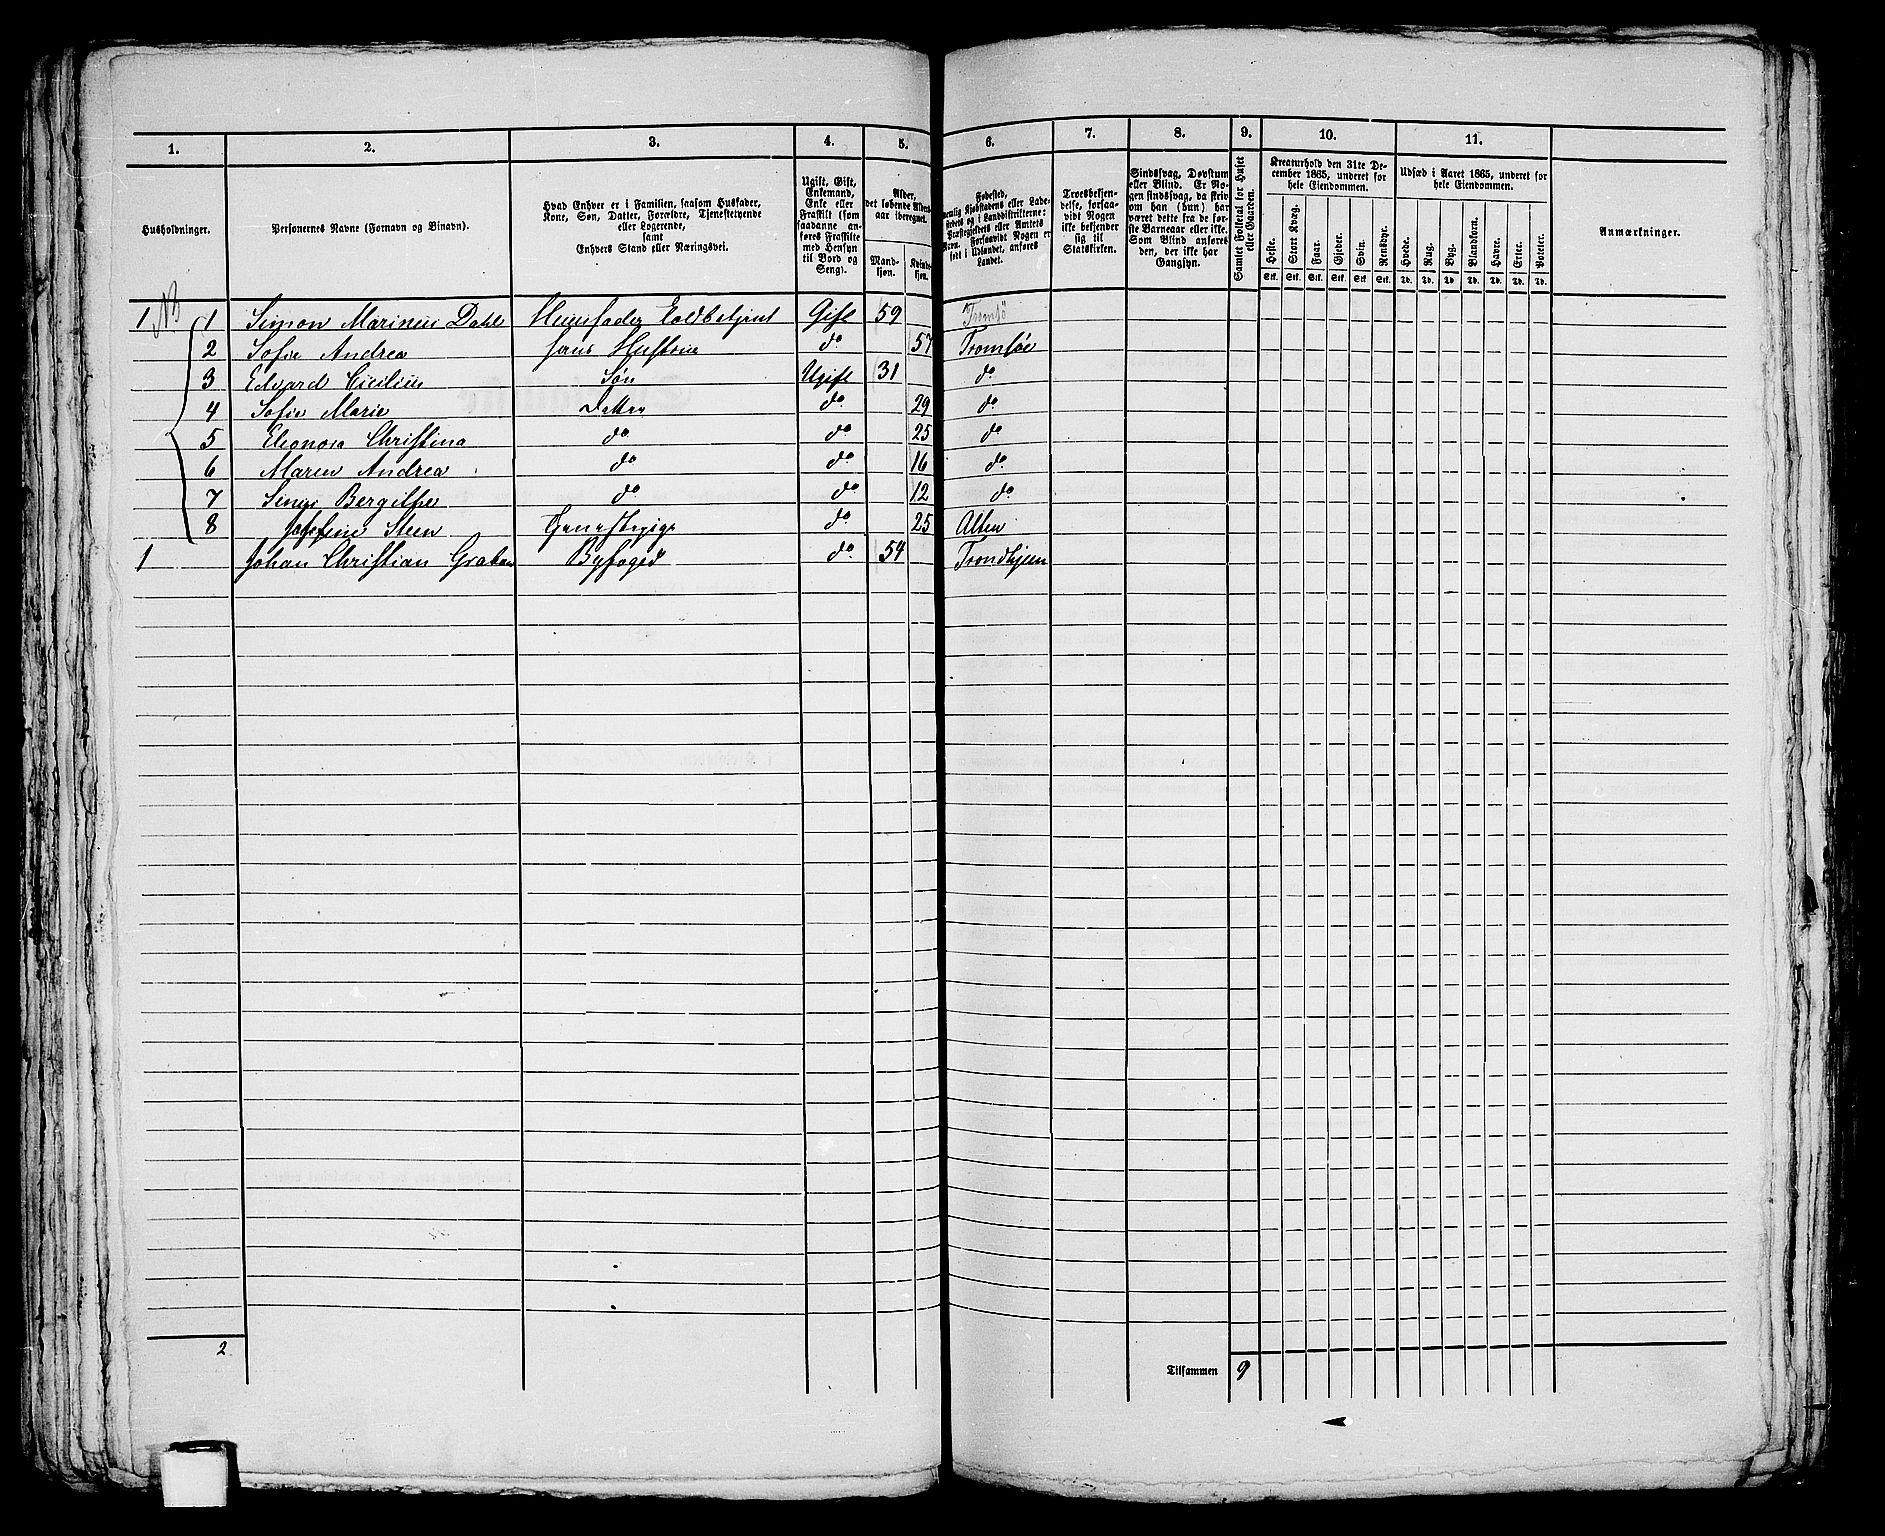 1. 2. 3. 4. 5. 6. 7. 8. 9. 10. 11.
Husholdninger.
Personernes Navne (Fornavn og Binavn).
Hvad Enhver er i Familien, saasom Husfader,
Kone, Søn, Datter, Forældre, Tjenestetyende
eller Logerende,
samt
Enhvers Stand eller Næringsvei.
Ugift, Gift,
Enkemand,
Enke eller
Fraskilt (som
saadanne an-
føres Fraskilte
med Hensyn
til Bord og
Seng).
Alder,
det løbende Alders-
aar iberegnet.
Mand-
kjøn.
Kvinde-
kjøn.
Fødested,
nemlig Kjøbstadens eller Lade-
stedets og i Landdistrikterne:
Præstegjeldets eller Amtets
Navn. Forsaavidt Nogen er
født i Udlandet, anføres
Landet.
Troesbekjen-
delse, forsaa-
vidt Nogen
ikke bekjender
sig til
Statskirken.
Sindssvag, Døvstum
eller Blind. Er No-
gen sindssvag, da skriv
om han (hun) har
været dette fra de før-
ste Barneaar eller ikke.
Som Blind anføres
den, der ikke har
Gangsyn.
Samlet Folketal for Huset
eller Gaarden.
Kreaturhold den 31te De-
cember 1865, underet for
hele Eiendommen.
Heste. Stort Kvæg. Faar. Gjeder. Svin. Rensdyr.
Stk. Stk. Stk. Stk. Stk. Stk.
Udsæd i Aaret 1865, underet for
hele Eiendommen.
Hvede. Rug. Byg. Blandkorn. Havre. Erter. Poteter.
Td. Td. Td. Td. Td. Td. Td.
Anmærkninger.
1 NB 1 Simon Marinus Dahl Huusfader Toldbetjent Gift 59 Tromsö
2 Sofie Andrea Hans Hustrue do 57 Tromsøe
3 Edvard Cicilius Søn Ugift 31 do
4 Sofie Marie Datter do 29 do
5 Eleonora Christina do do 25 do
6 Maren Andrea do do 16 do
7 Bergitthe do do 12 do
8 Josefine Steen Tjenestepige do 25 Alten
1 Johan Christian Byfoged do 54 Trondhjem
2
Tilsammen 9